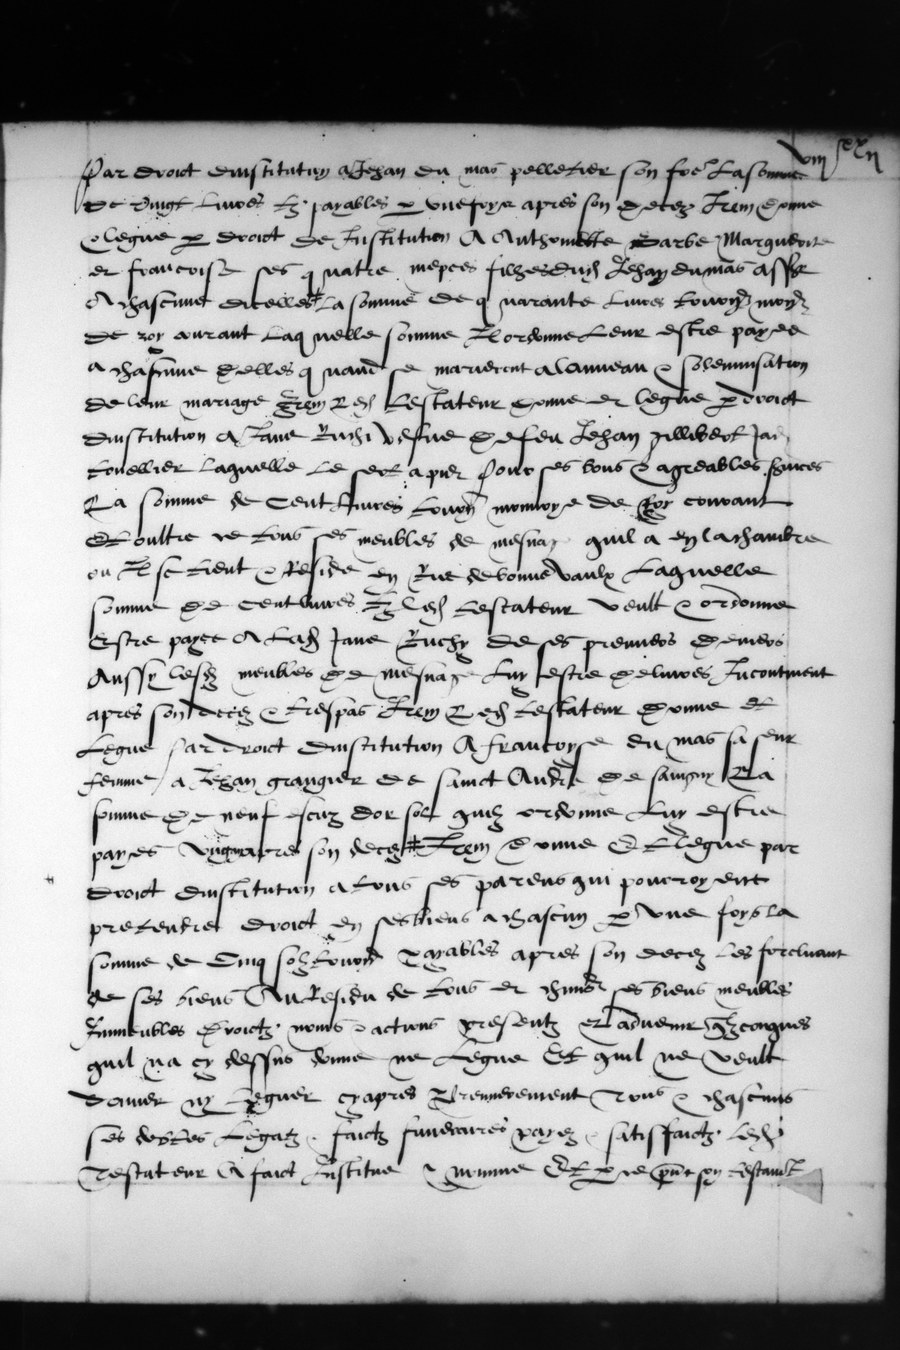 viii xx ii
Par droict dinstitution a Jehan du mas pelletier son frere la somme
de vingt livres tz payables p une foys apres son decez Item donne
& legue p droict de Institution A Anthoinette Barbe Marguerite
et francoise ses quatre niepces filhes dud Jehan du mas Assr
A chascune dicelles la somme de quarante livres tournz monoye
de roy courant Laquelle somme Il ordonne Leur estre payee
a chascune delles quand se marieront a Lanneau & solempnisation
de leur mariage Item Led Testateur donne et legue p droict
dinstitution A Jane Ruchi vefve de feu Jehan Jllibert
tonellier Laquelle Le sert a pnt Pour ses bons & agreables services
La somme de Cent livres tournz monnoye de Roy courant
Et oultre ce tous ses meubles de mesnage quil a en la chambre
ou Il se tient & Reside en Rue de bonnevaulx Laquelle
somme de Cent livres tz led testateur veult & ordonne
Estre payee A Lad Jane Ruchy de ses premiers deniers
Aussy lesd meubles de mesnage Luy estre delivres Incontinent
apres son decez & trespas Item Led testateur donne et
Legue par droict dinstitution A francoyse du mas sa seur
femme a Jehan grangier de sainct Andre de savigny La
somme de neuf escuz dor sol quil ordonne Luy estre
payes ung an apres son decez Item donne Et Legue par
droict dinstitution a tous ses parens qui pourroyent
pretendre droict en ses biens a chascun p une foys la
somme de Cinq solz tournz Payables apres son decez les forcluant
de ses biens Au Residu de tous et chms ses biens meubles
Immeubles droictz noms & actions presentz et advenir qlzconques
quil na cy dessus donne ne Legue Et quil ne veult
donner ny Leguer cy apres Premierement Tous & chascuns
ses debtes Legatz faictz funeraires payez & satisfaictz Led
Testateur A faict Institue & nomme Et p ce pnt son testamt